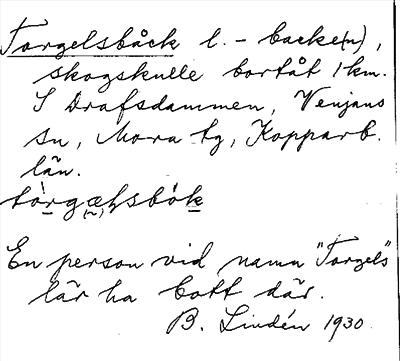 Torgelsbåck l. - backe(n),
skogskulle bortåt 1 km.
S Drafsdammen, Venjans
sn, Mora tg, Kopparb.
län.
En person vid namn "Torgels"
lär ha bott där.
B. Lindén 1930.